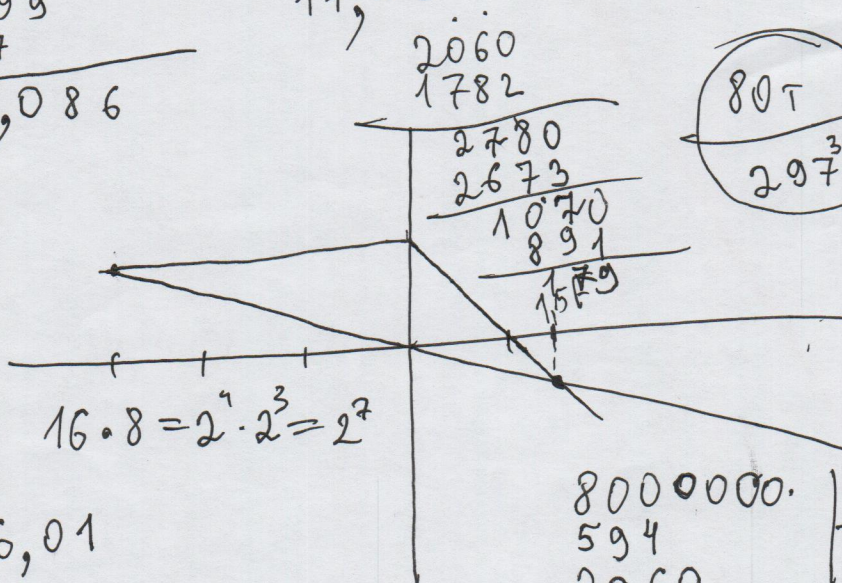 ,086
2060
1782
2780
2673
1070
891
179
80т
297³
16·8=2⁴·2³=2⁷
,01
8000000.
594